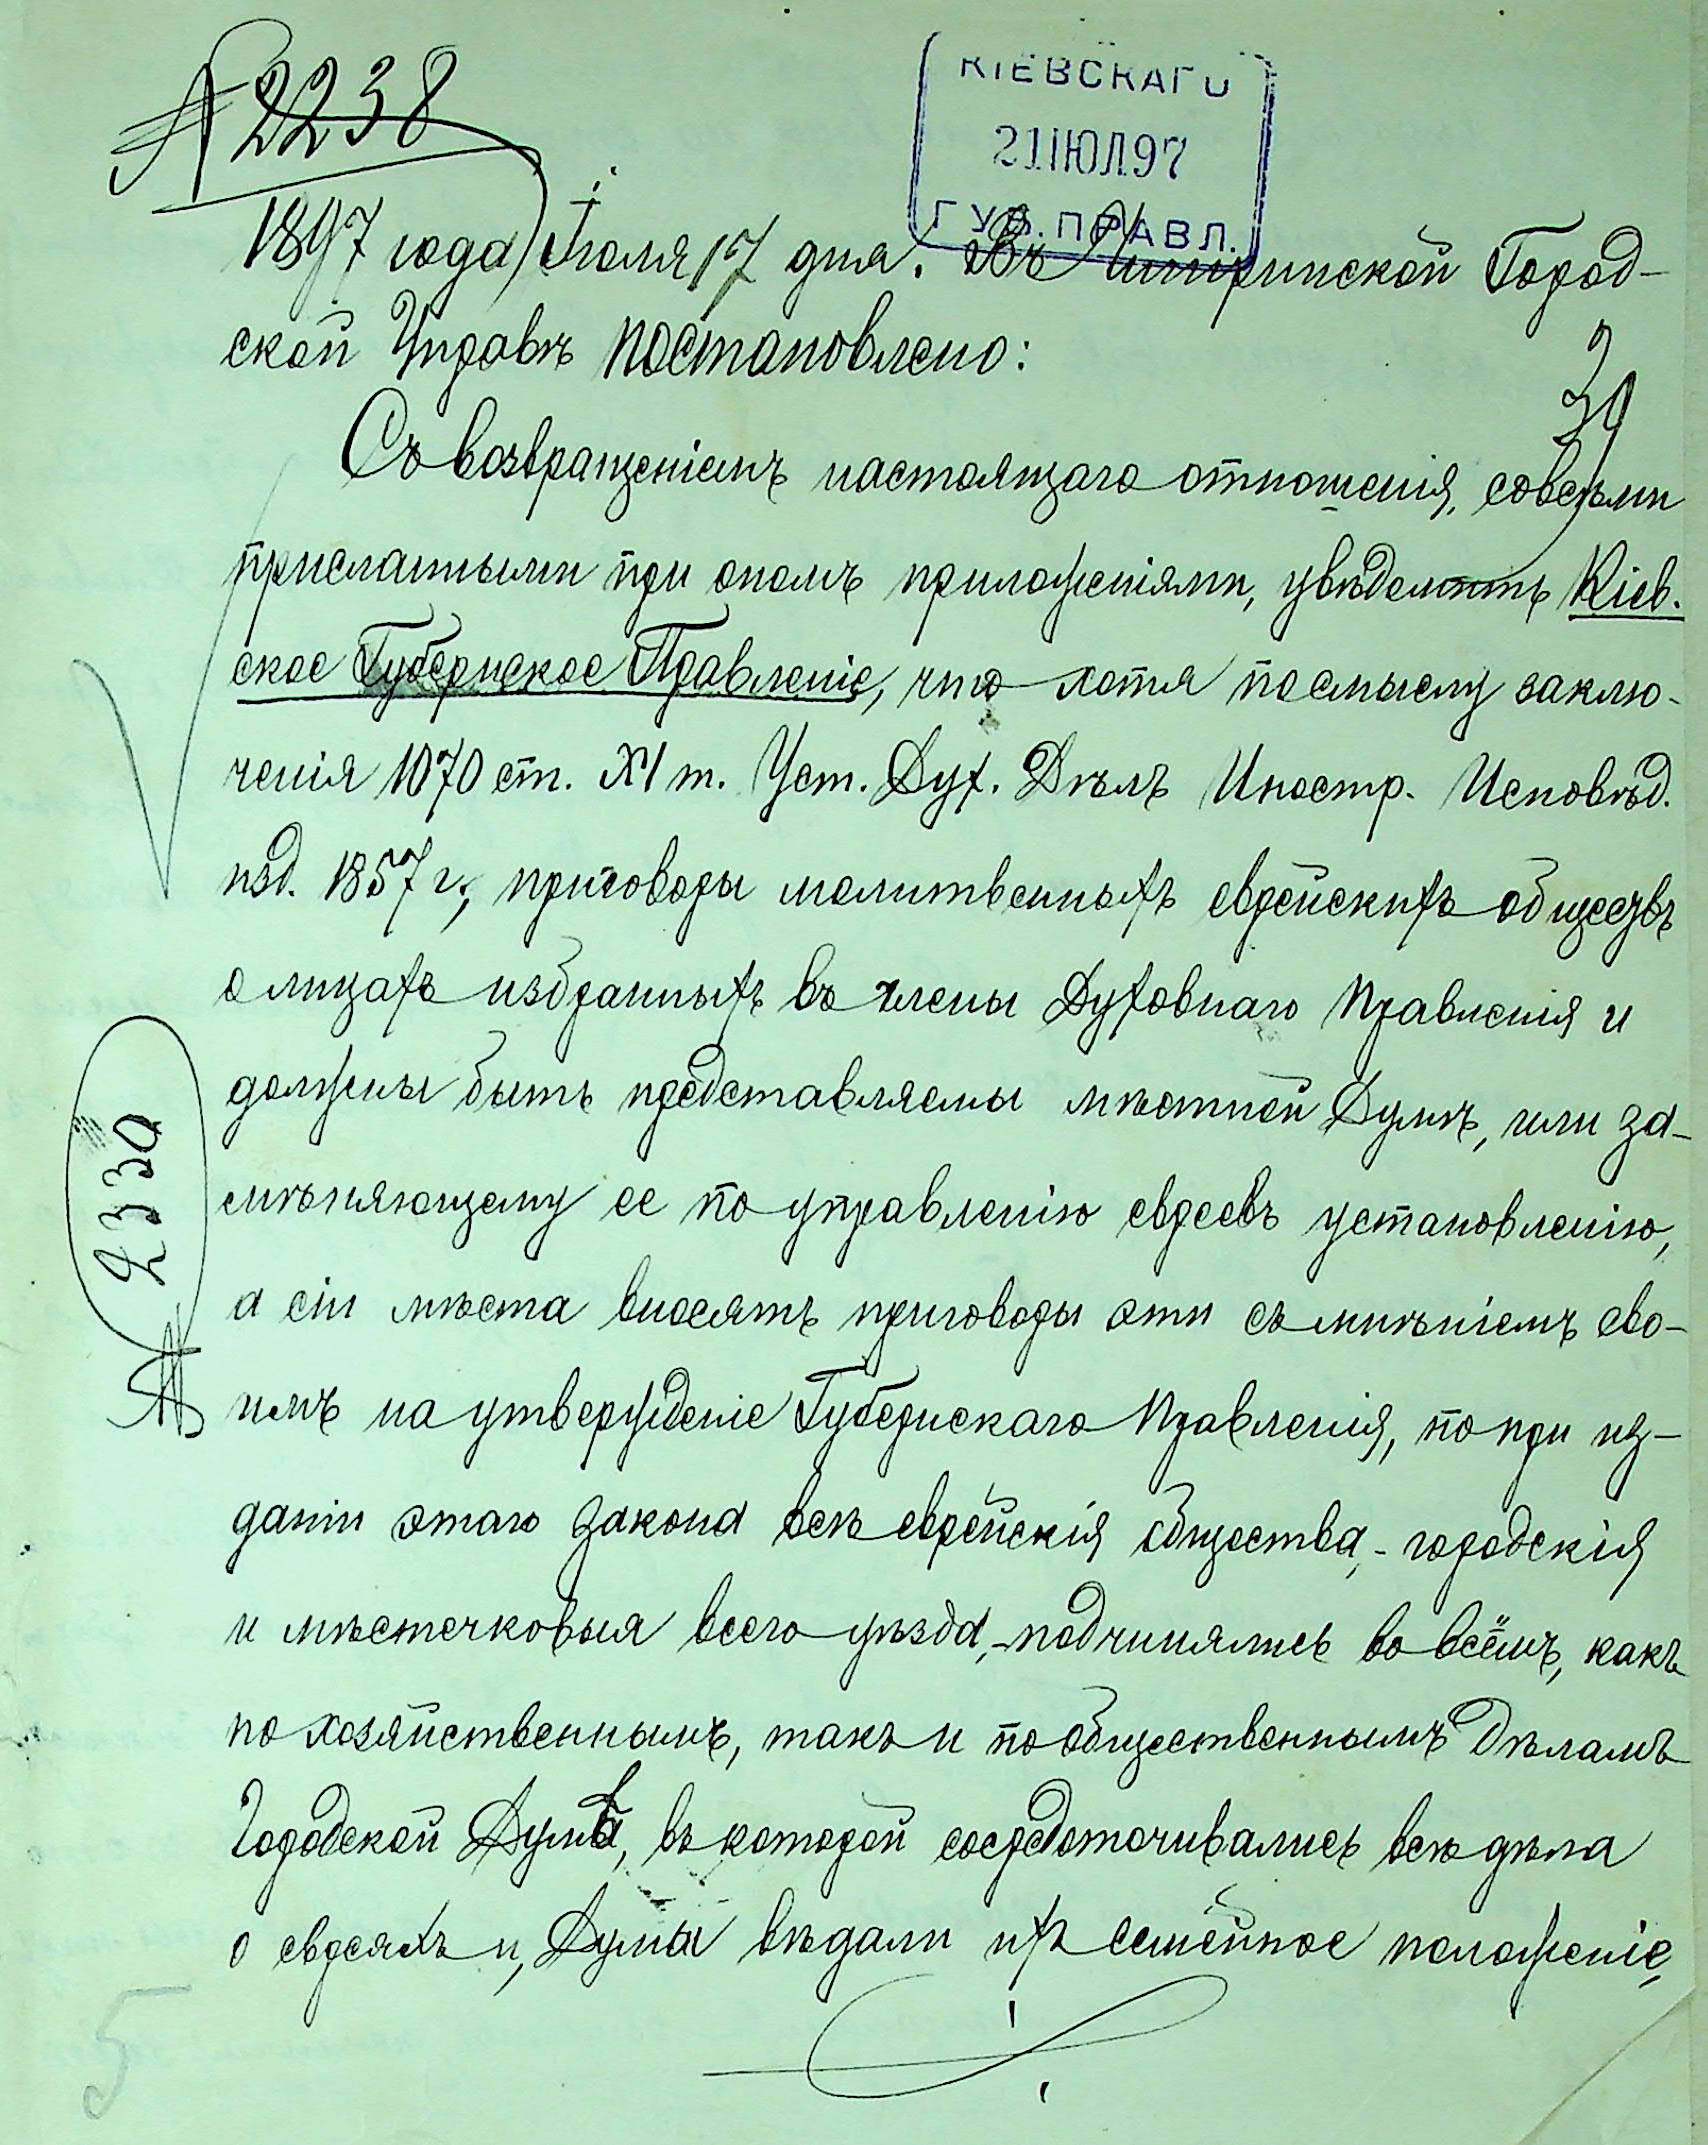 № 2238
КІЕВСКАГО
21 ІЮЛ 97
ГУБ. ПРАВЛ.
1897 года Іюля 17 дня. Въ Чигиринской Город-
ской Управѣ постановлено:
39
Съ возвращеніемъ настоящаго отношенія, со всѣми
присланными при ономъ приложеніями, увѣдомить Кіев.
ское Губернское Правленіе, что хотя по смыслу заклю-
ченія 1070 ст. XI т. Уст. Дух. Дѣлъ Иностр. Исповѣд.
изд. 1857 г., приговоры молитвенныхъ еврейскихъ обществъ
о лицахъ избранныхъ въ члены Духовнаго Правленія и
должны быть представляемы мѣстной Думѣ, или за-
мѣняющему ее по управленію евреевъ установленію,
а сіи мѣста вносятъ приговоры эти съ мнѣніемъ сво-
имъ на утвержденіе Губернскаго Правленія, но при из-
даніи этого закона всѣ еврейскія общества, - городскія
и мѣстечковыя всего уѣзда, - подчинялись во всёмъ, какъ
по хозяйственнымъ, такъ и по общественнымъ дѣламъ
Городской Думѣ, въ которой сосредоточивались всѣ дѣла
о евреяхъ и, Думы вѣдали ихъ семейное положеніе,
№ 2330
5